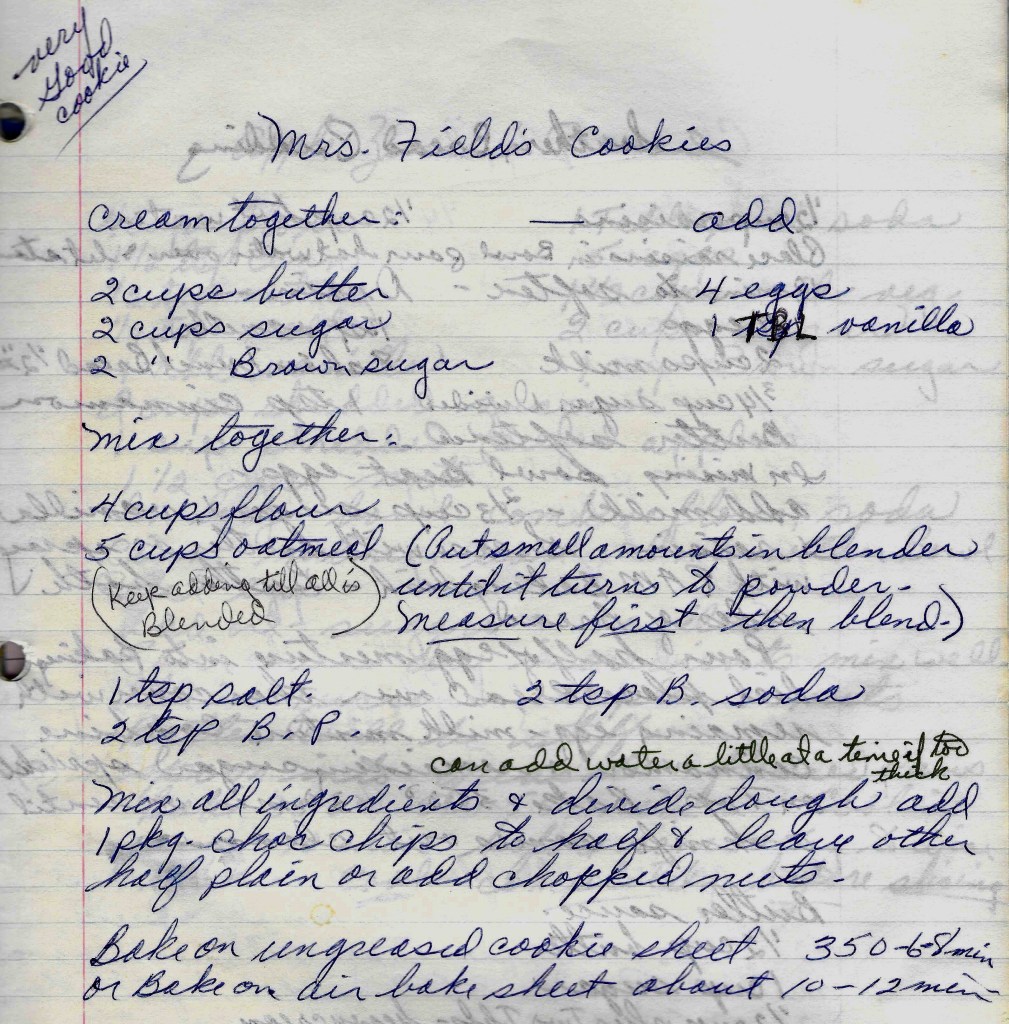 very
Good
cookie
Mrs. Field's Cookies
Cream together: — add
2 cups butter 4 eggs
2 cups sugar 1 TBL vanilla
2 " Brown sugar
Mix together:
4 cups flour
5 cups oatmeal (Put small amounts in blender
(Keep adding till all is until it turns to powder.
Blended) Measure first then blend.)
1 tsp salt. 2 tsp B. soda
2 tsp B. P.
can add water a little at a time if too
thick
Mix all ingredients & divide dough add
1 pkg. choc chips to half & leave other
half plain or add chopped nuts.
Bake on ungreased cookie sheet 350-6-8 min
or Bake on air bake sheet about 10-12 min